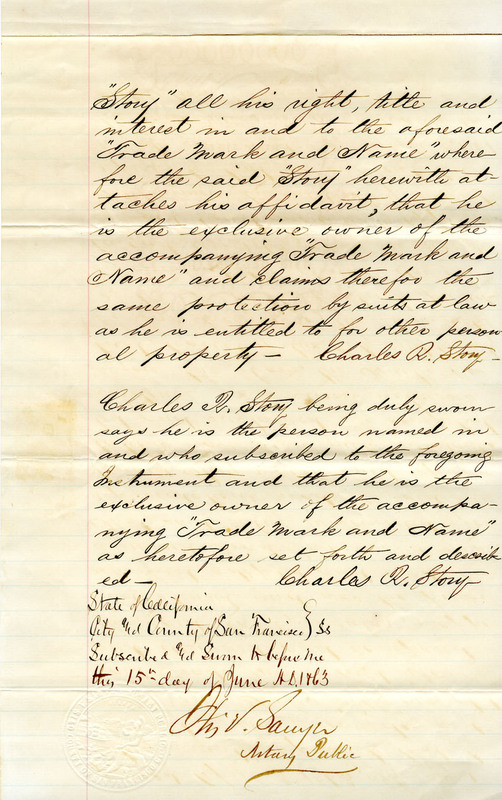 "Story" all his right, title and
interest in and to the aforesaid
"Trade Mark and Name" where-
fore the said "Story" herewith at-
taches his affidavit, that he
is the exclusive owner of the
accompanying "Trade Mark and
Name" and claims therefor the
same protection by suits at law
as he is entitled to for other person-
al property — Charles R. Story —
Charles R. Story being duly sworn
says he is the person named in
and who subscribed to the foregoing
Instrument and that he is the
exclusive owner of the accompa-
nying "Trade Mark and Name"
as heretofore set forth and describ-
ed — Charles R. Story
State of California
City and County of San Francisco } SS
Subscribed and Sworn to before me
this 15th day of June A.D. 1863
V. Sawyer
Notary Public